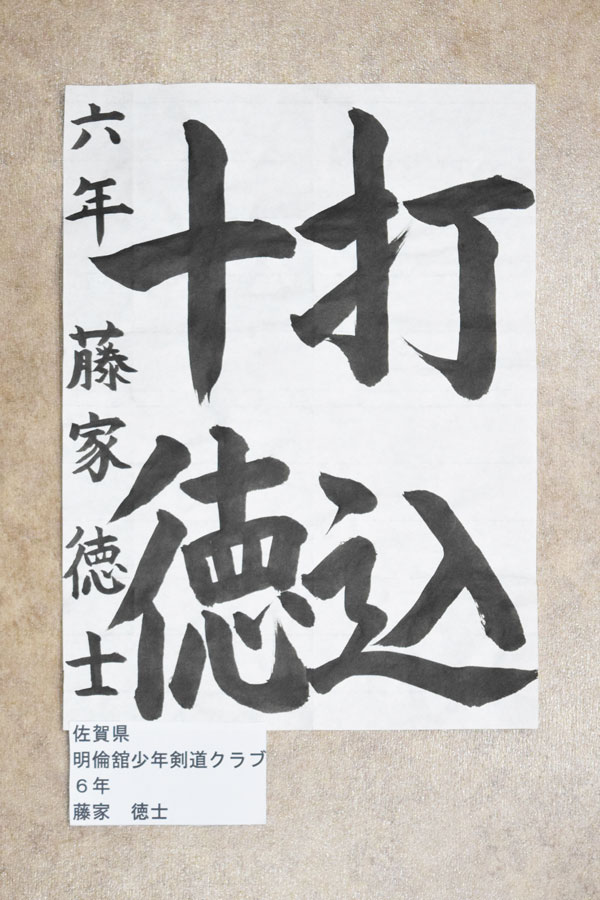 打込
十徳
六年 藤家徳士
佐賀県
明倫舘少年剣道クラブ
６年
藤家　徳士